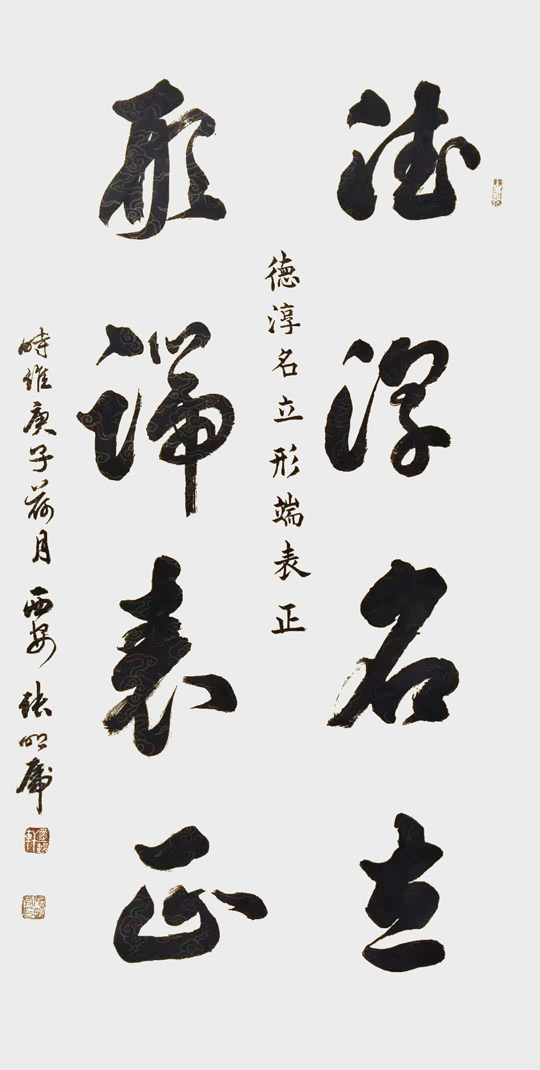 德淳名立
德淳名立形端表正
形端表正
时维庚子荷月 西安 张明虎